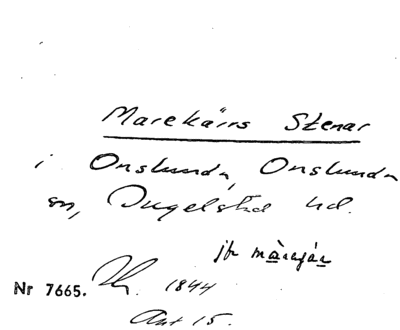 Marekärrs Stenar
i Onslunda, Onslunda
sn, Ingelstad hd.
jfr màragár
Nr 7665. Th. 1844
Ant 15.